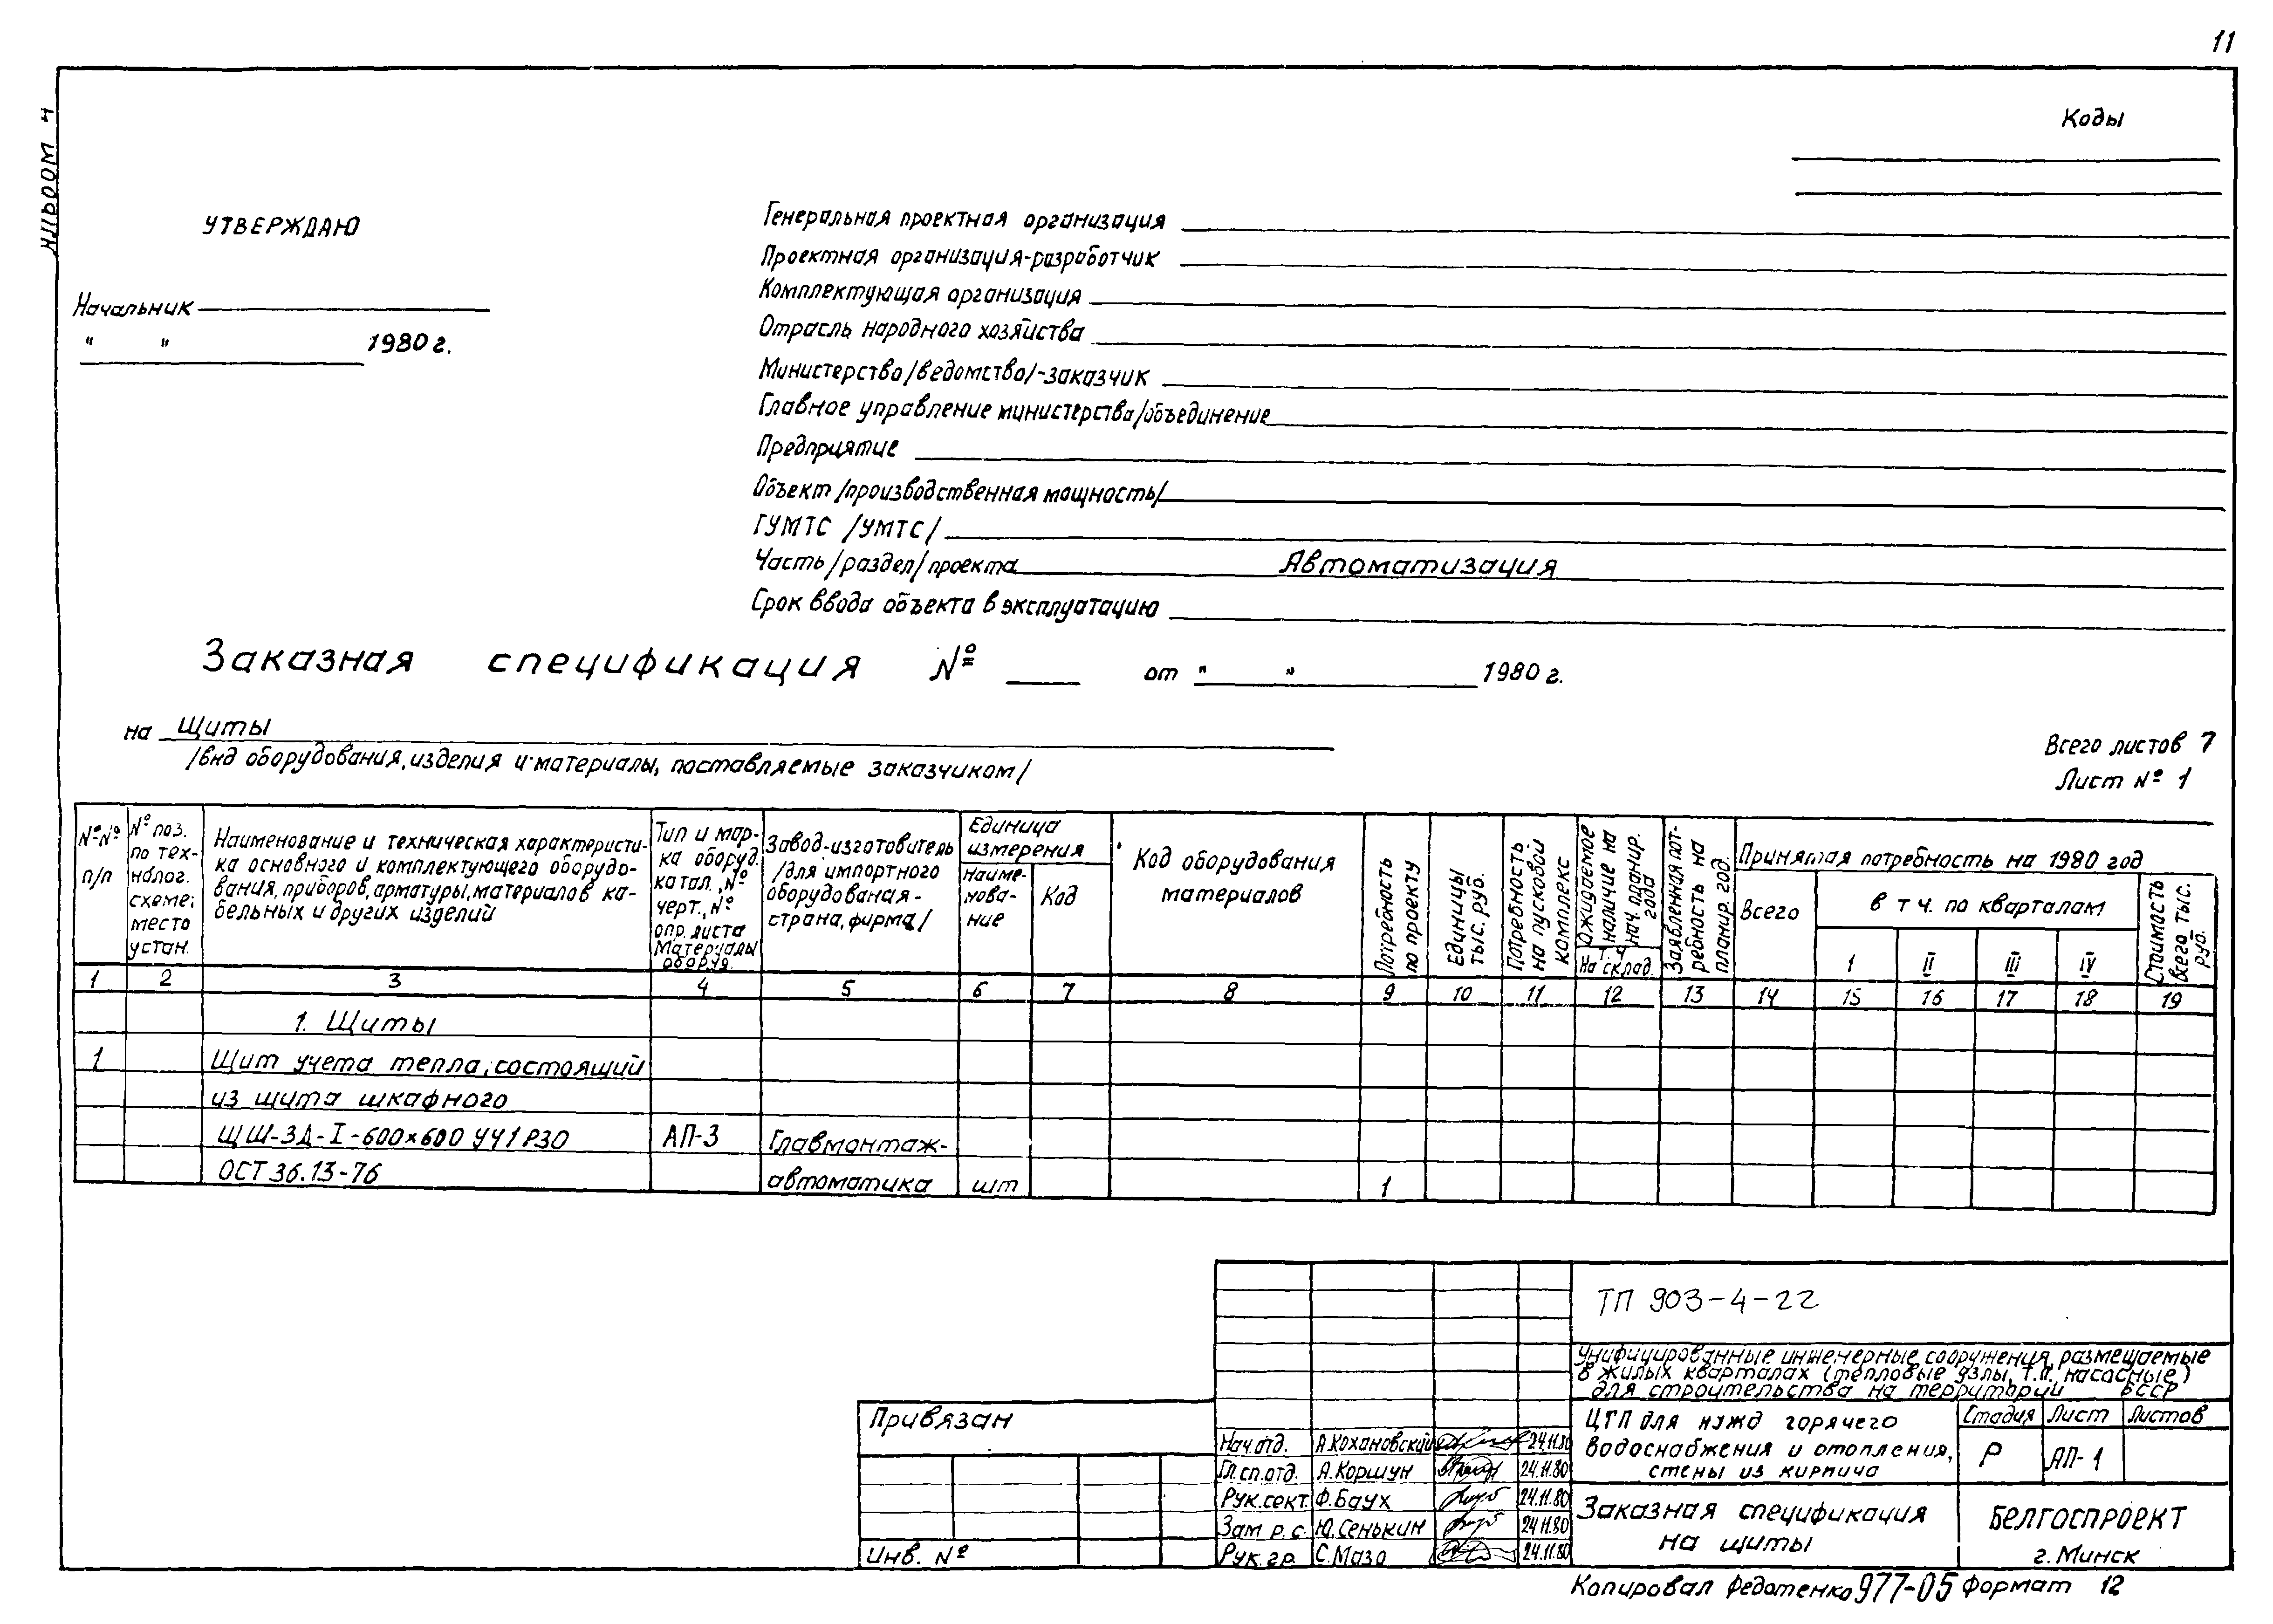 11
Альбом 4
Коды
УТВЕРЖДАЮ
Начальник
" " 1980 г.
Генеральная проектная организация
Проектная организация-разработчик
Комплектующая организация
Отрасль народного хозяйства
Министерство/ведомство/-заказчик
Главное управление министерства/объединение
Предприятие
Объект /производственная мощность/
ГУМТС /УМТС/
Часть/раздел/проекта Автоматизация
Срок ввода объекта в эксплуатацию
Заказная спецификация № от " " 1980 г.
на Щиты
/вид оборудования, изделия и материалы, поставляемые заказчиком/
Всего листов 7
Лист № 1
№№
п/п
№ поз.
по тех-
нолог.
схеме;
место
устан.
Наименование и техническая характеристи-
ка основного и комплектующего оборудо-
вания, приборов, арматуры, материалов ка-
бельных и других изделий
Тип и мар-
ка оборуд.
катал., №
черт., №
опр. листа
Материалы
оборуд.
Завод-изготовитель
/для импортного
оборудования-
страна, фирма/
Единица
измерения
наиме-
нова-
ние
Код
Код оборудования
материалов
Потребность
по проекту
Единицы
тыс. руб.
Потребность
на пусковой
комплекс
Ожидаемое
наличие на
нач. планир.
года
Т. ч
На склад.
Заявленная пот-
ребность на
планир. год.
Принятая потребность на 1980 год
Всего
в т ч. по кварталам
1 II III IV
Стоимость
всего тыс.
руб.
1 2 3 4 5 6 7 8 9 10 11 12 13 14 15 16 17 18 19
1. Щиты
1 Щит учета тепла, состоящий
из щита шкафного
ЩШ-ЗД-I-600×600 УЧ1Р30 АП-3 Главмонтаж-
ОСТ 36.13-76 автоматика шт 1
ТП 903-4-22
Унифицированные инженерные сооружения, размещаемые
в жилых кварталах (тепловые узлы, т.п., насосные)
для строительства на территории БССР
Привязан
Инв. №
Нач. отд. А.Кохановский 24.11.80
Гл.сп.отд. А.Коршун 24.11.80
Рук.сект. Ф.Баух 24.11.80
Зам р. с. Ю.Сенькин 24.11.80
Рук. гр. С.Мазо 24.11.80
ЦТП для нужд горячего
водоснабжения и отопления,
стены из кирпича
Стадия Лист Листов
Р АП-1
Заказная спецификация
на щиты
БЕЛГОСПРОЕКТ
г. Минск
Копировал Федотенко 977-05 Формат 12